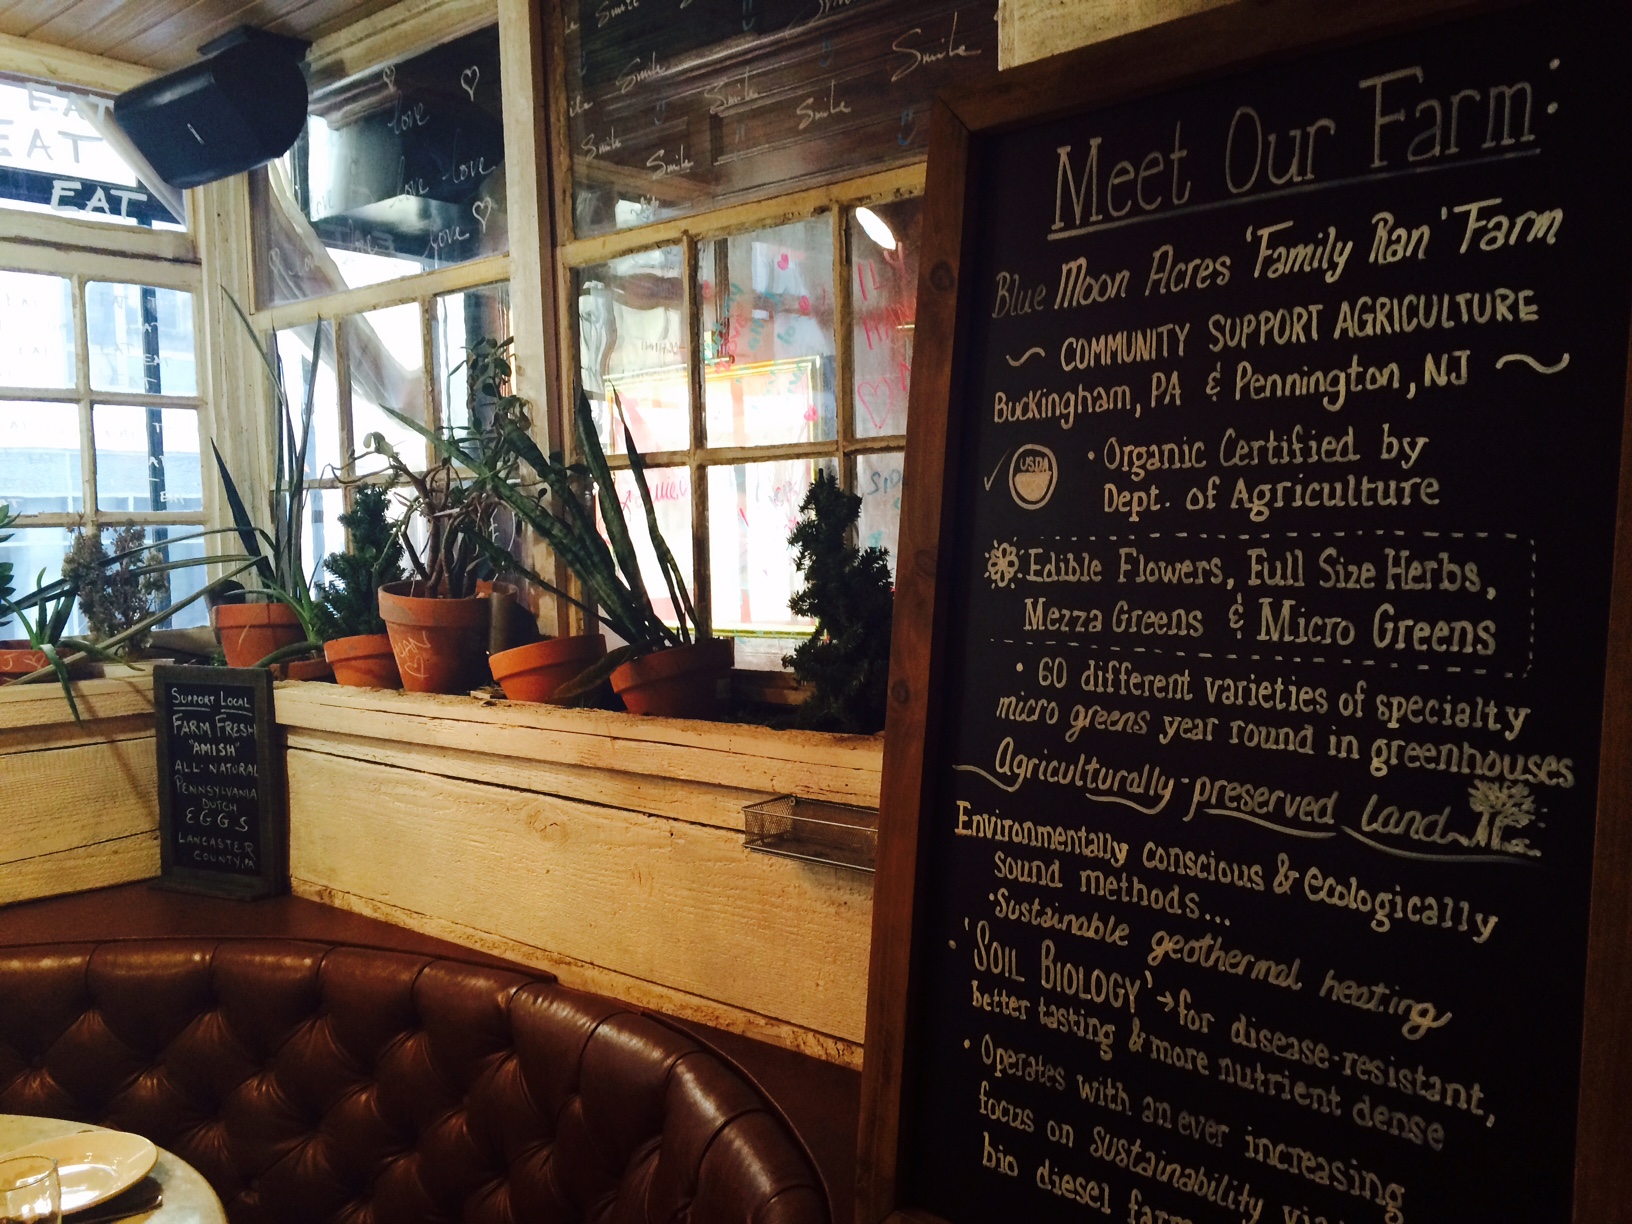 EAT
EAT
EAT
love
love
love
love
Smile
Smile
Smile
Smile
Smile
Smile
Smile
Meet Our Farm:
Blue Moon Acres 'Family Ran' Farm
~ COMMUNITY SUPPORT AGRICULTURE
Buckingham, PA & Pennington, NJ ~
USDA
• Organic Certified by
Dept. of Agriculture
Edible Flowers, Full Size Herbs,
Mezza Greens & Micro Greens
• 60 different varieties of specialty
micro greens year round in greenhouses
Agriculturally-preserved land
Environmentally conscious & ecologically
sound methods...
• Sustainable geothermal heating
• 'SOIL BIOLOGY' → for disease-resistant,
better tasting & more nutrient dense
• Operates with an ever increasing
focus on sustainability
bio diesel
SUPPORT LOCAL
FARM FRESH
"AMISH"
ALL-NATURAL
PENNSYLVANIA
DUTCH
EGGS
LANCASTER
COUNTY, PA